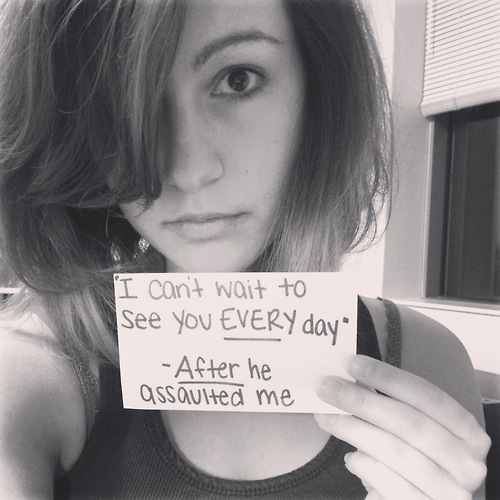 "I can't wait to
see you EVERY day"
- After he
assaulted me